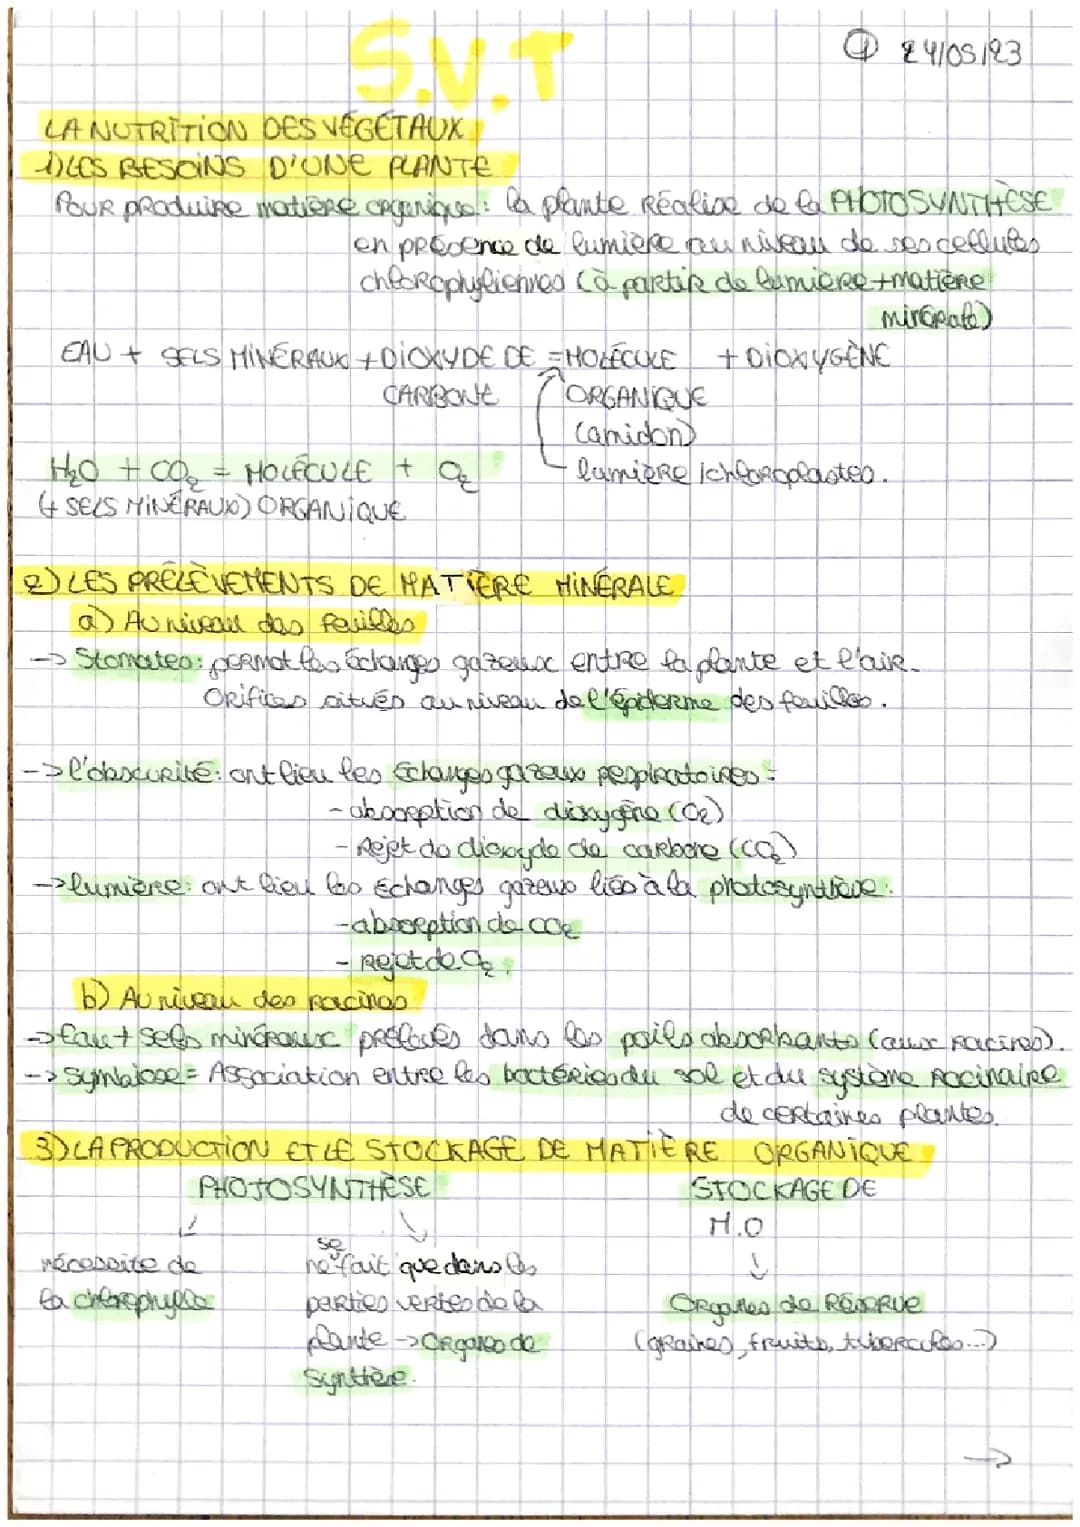 S.V.T
① 24/05/23
LA NUTRITION DES VÉGÉTAUX
1) LES BESOINS D'UNE PLANTE
Pour produire matière organique : la plante Réalise de la PHOTOSYNTHÈSE
en présence de lumière au niveau de ses cellules
chlorophyliennes (à partir de lumière + matière
minérale)
EAU + SELS MINÉRAUX + DIOXYDE DE = MOLÉCULE + DIOXYGÈNE
CARBONE ORGANIQUE
(amidon)
lumière / chloroplastes.
H₂O + CO₂ = MOLÉCULE + O₂
(+ SELS MINÉRAUX) ORGANIQUE
2) LES PRÉLÈVEMENTS DE MATIÈRE MINÉRALE
a) Au niveau des feuilles
-> Stomates : permet les échanges gazeux entre la plante et l'air.
Orifices situés au niveau de l'épiderme des feuilles.
-> l'obscurité : ont lieu les Échanges gazeux respiratoires :
- absorption de dioxygène (O₂)
- Rejet de dioxyde de carbone (CO₂)
-> lumière : ont lieu les échanges gazeux liés à la photosynthèse :
- absorption de CO₂
- Rejet de O₂.
b) Au niveau des racines
-> Eau + Sels minéraux prélevés dans les poils absorbants (aux racines).
-> Symbiose = Association entre les bactéries du sol et du système racinaire
de certaines plantes.
3) LA PRODUCTION ET LE STOCKAGE DE MATIÈRE ORGANIQUE
PHOTOSYNTHÈSE STOCKAGE DE
M.O
nécessite de
la chlorophylle
se
ne fait que dans les
parties vertes de la
plante -> Organes de
Synthèse.
Organes de RÉSERVE
(graines, fruits, tubercules...)
->